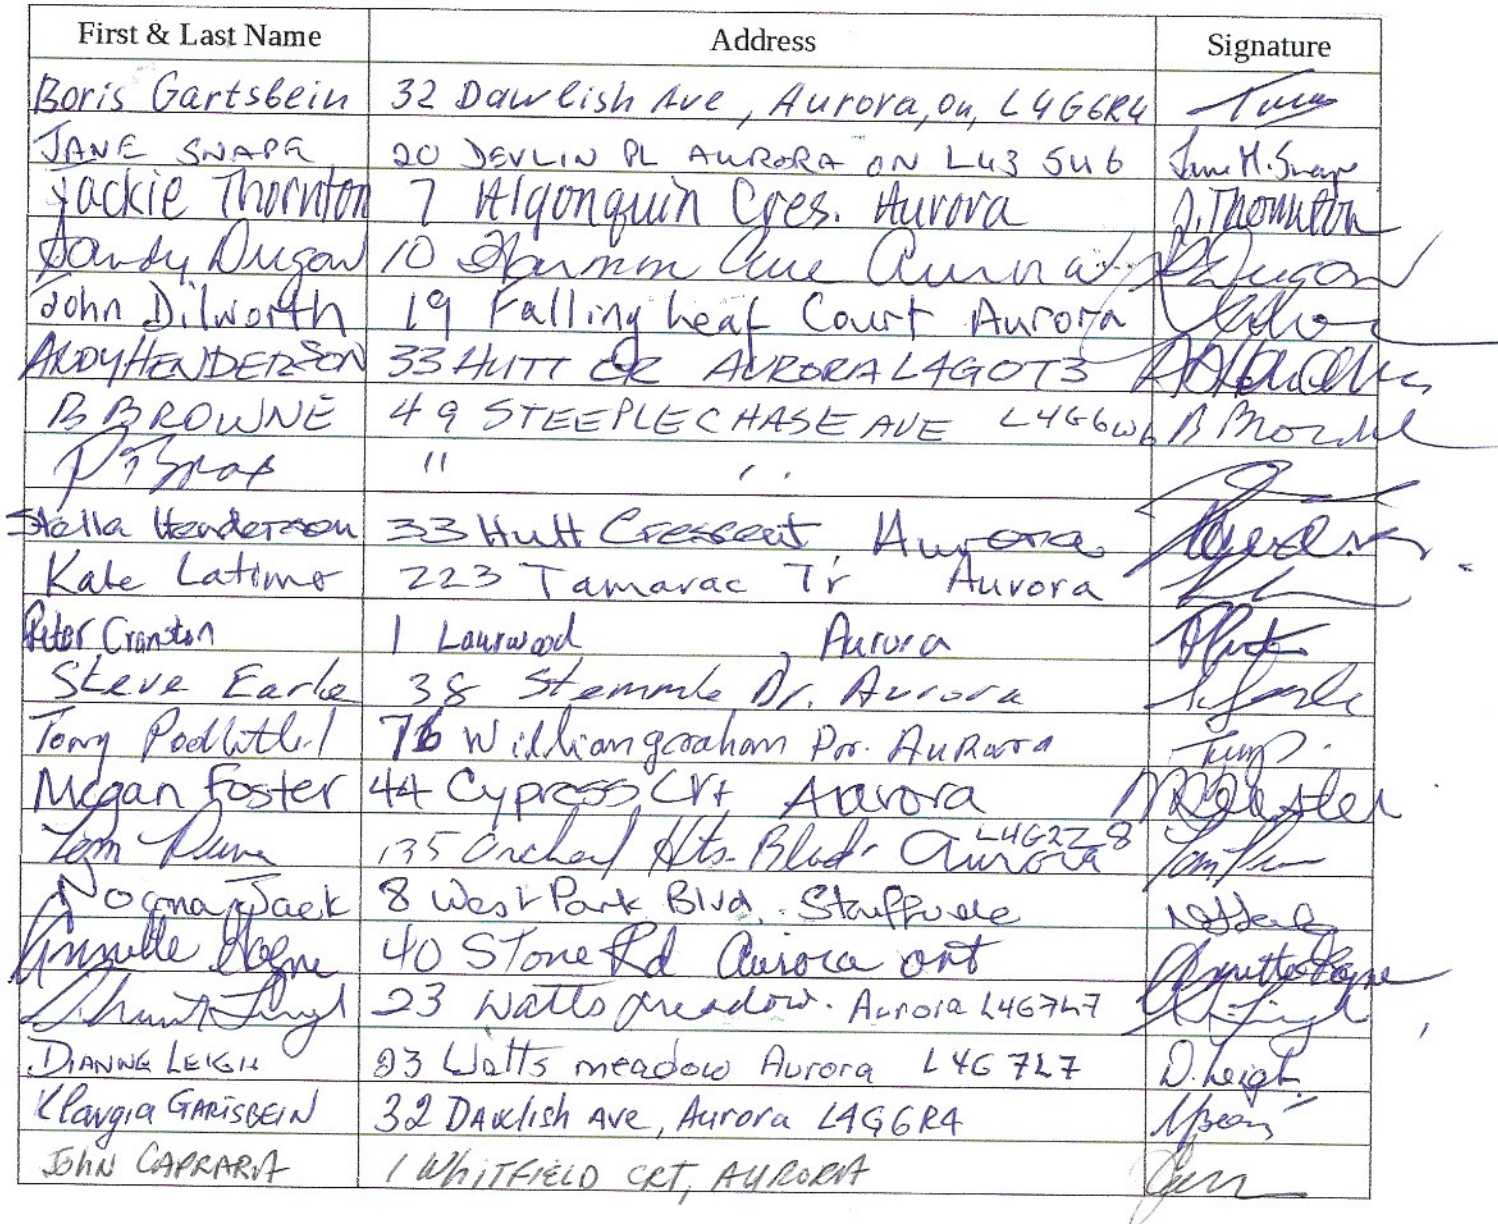 First & Last Name Address Signature
Boris Gartsbein 32 Dawlish Ave, Aurora, On, L4G6R4
JANE SNAPE 20 DEVLIN PL AURORA ON L43 5W6 Jane M. Snape
Jackie Thornton 7 Algonquin Cres. Aurora J. Thornton
Sandy Dugan 10 Ave Aurora S Dugan
John Dilworth 19 Falling Leaf Court Aurora
ANDY HENDERSON 33 HUTT CR AURORA L4G0T3
B BROWNE 49 STEEPLECHASE AVE L4G6W6 B Browne
" "
Stella Henderson 33 Hutt Crescent, Aurora
Kate Latimer 223 Tamarac Tr Aurora
Peter Cranston 1 Laurwood, Aurora
Steve Earle 38 Stemmle Dr. Aurora S. Earle
Tony 76 Williamgraham Dr. AuRora
Megan Foster 44 Cypress Crt Aurora M Foster
Tom 135 Orchard Hts. Blvd. Aurora L4G2Z8 Tom
Norma Jack 8 West Park Blvd. Stouffville
Annette Hogne 40 Stone Rd Aurora ont Annette
23 Watts meadow. Aurora L4G7L7
DIANNE LEIGH 23 Watts meadow Aurora L4G 7L7 D. Leigh
Klavgia GARTSBEIN 32 Dawlish Ave, Aurora L4G6R4
JOHN CAPRARA 1 WHITFIELD CRT, AURORA